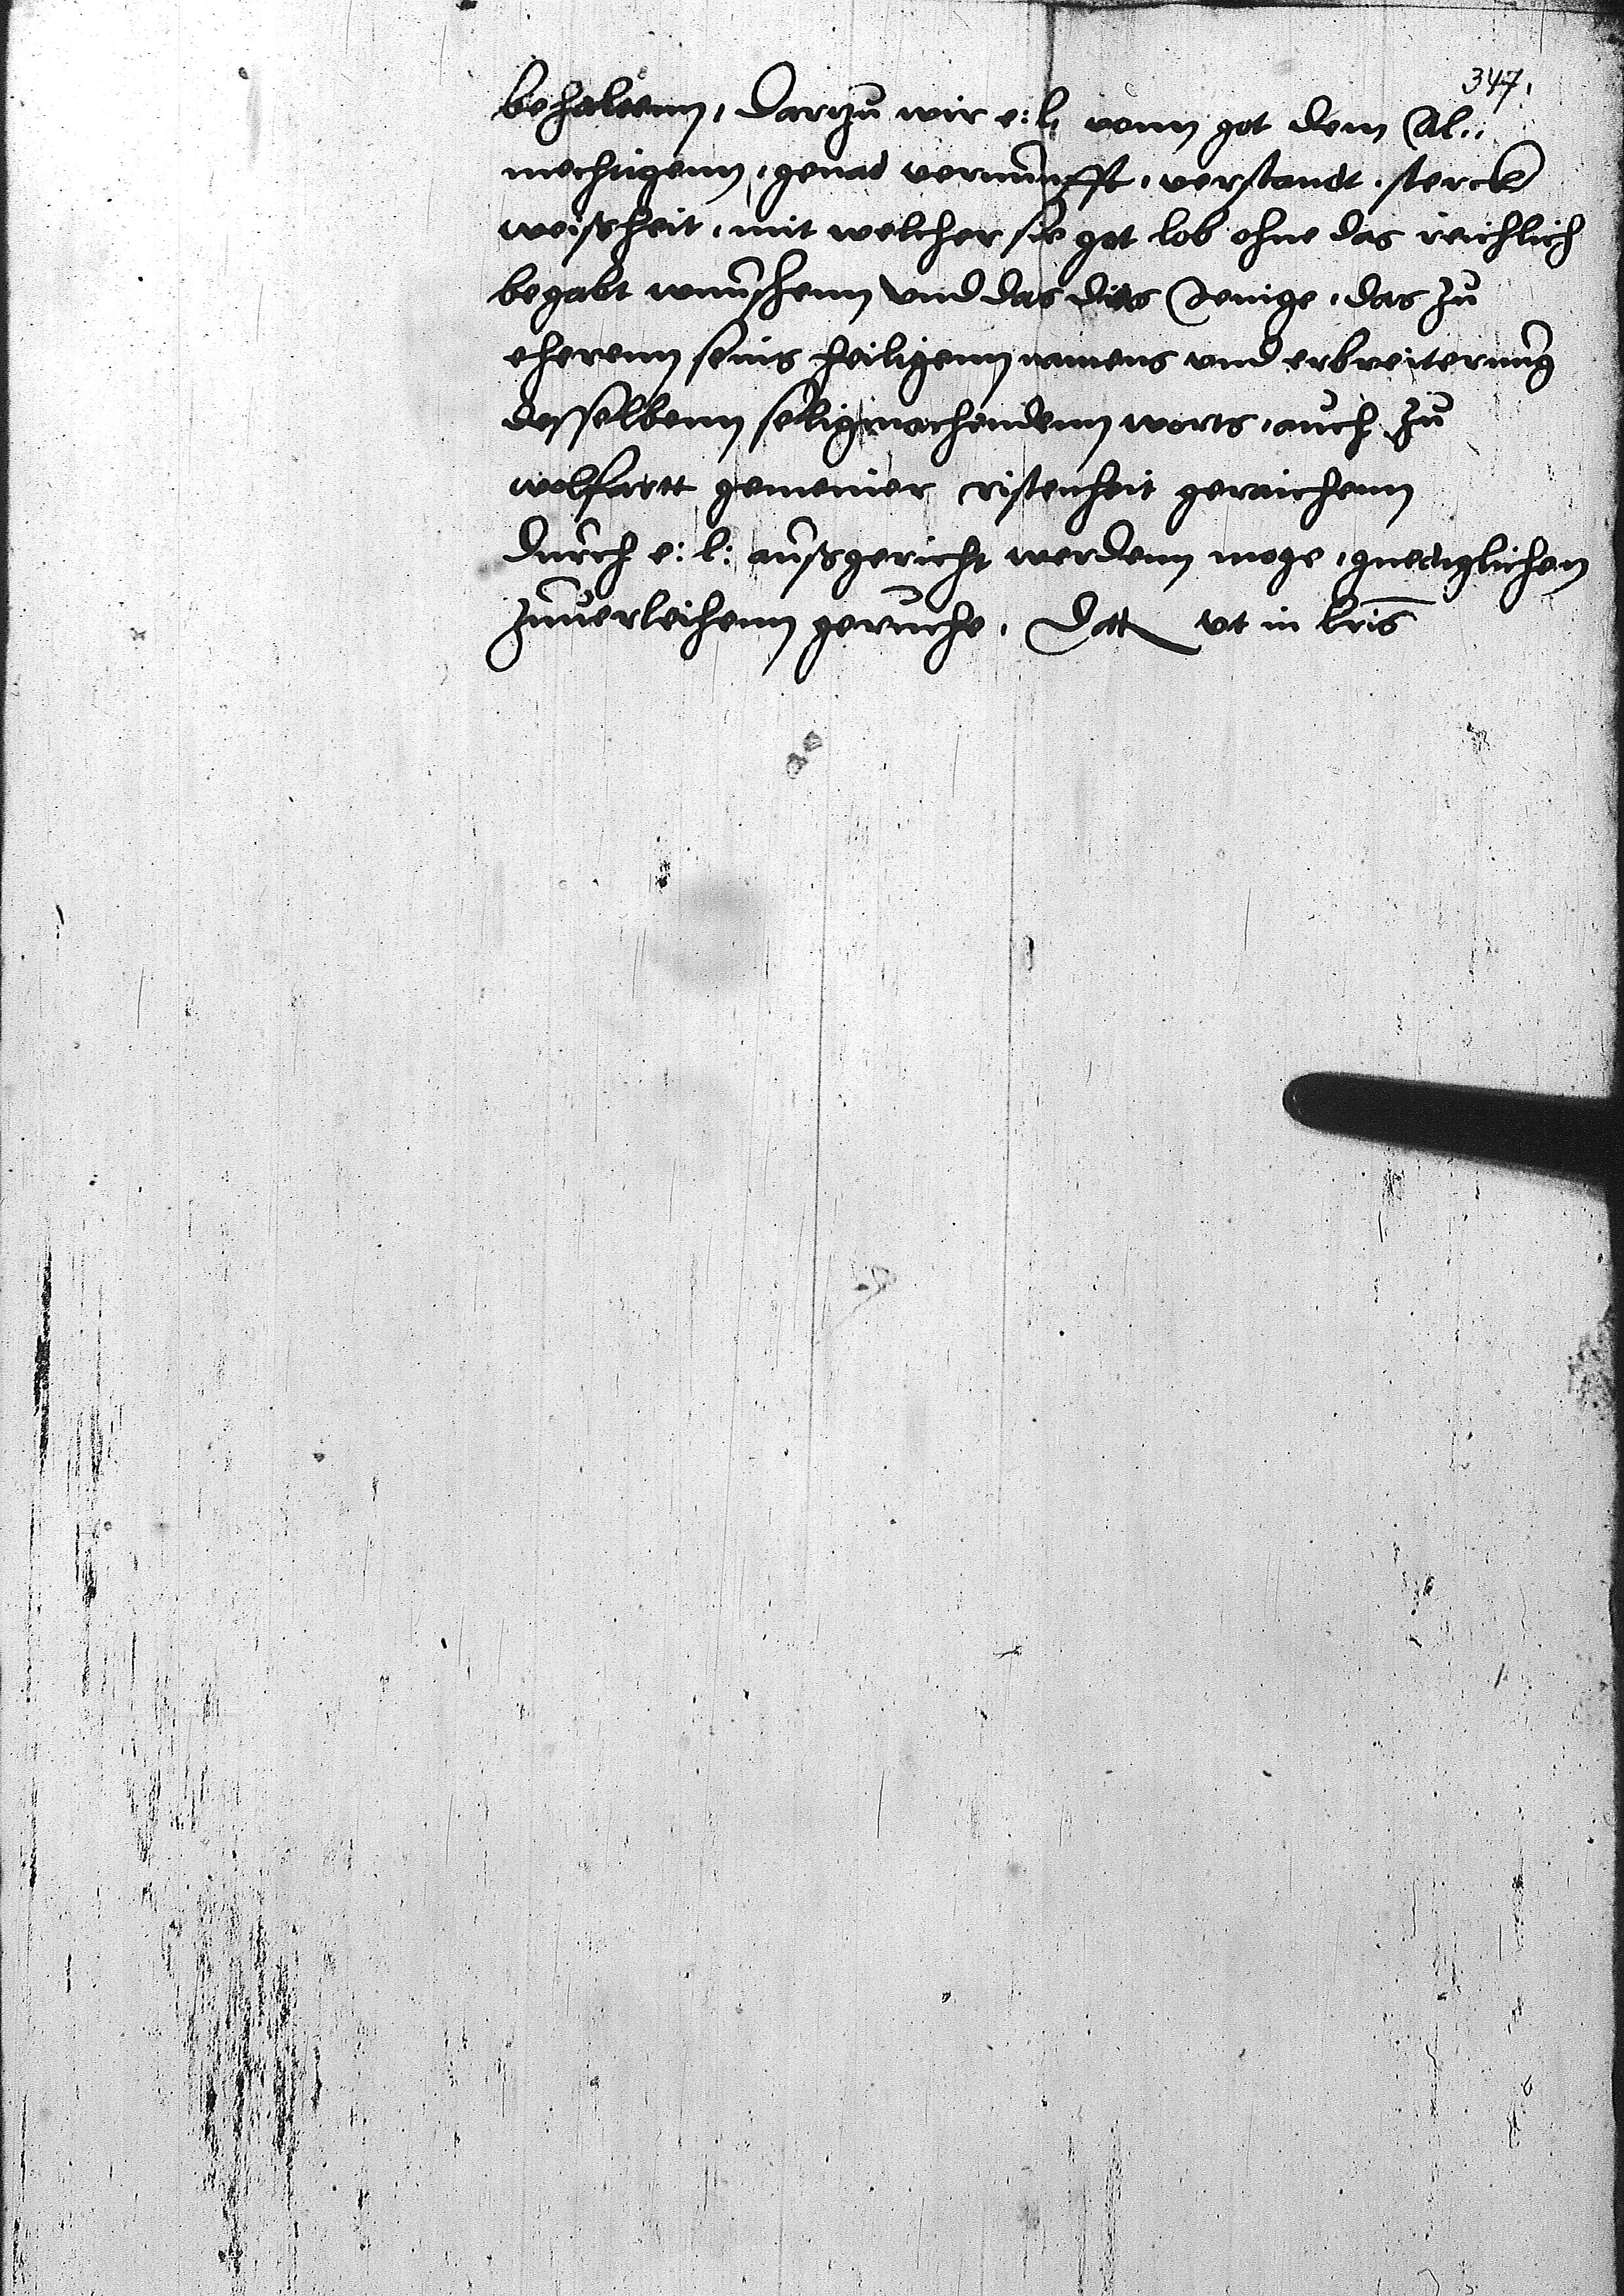 347.
behaltenn, Dartzu wir e: l: vonn got dem Al„
mechtigenn, genad vernunfft, verstandt, sterck
weißheit, mit welcher sie got lob ohne das reichlich
begabt wunschenn Vnd das dies Jenige, das zu
eherenn seins heiligenn namens vnd erbreiterung
desselbenn seligmachendenn worts, auch zu
wolfartt gemeiner cristenheit geraichenn
Durch e: l: außgericht werdenn moge, gnediglichen
zuuerleihenn geruche, Datt vt in lris